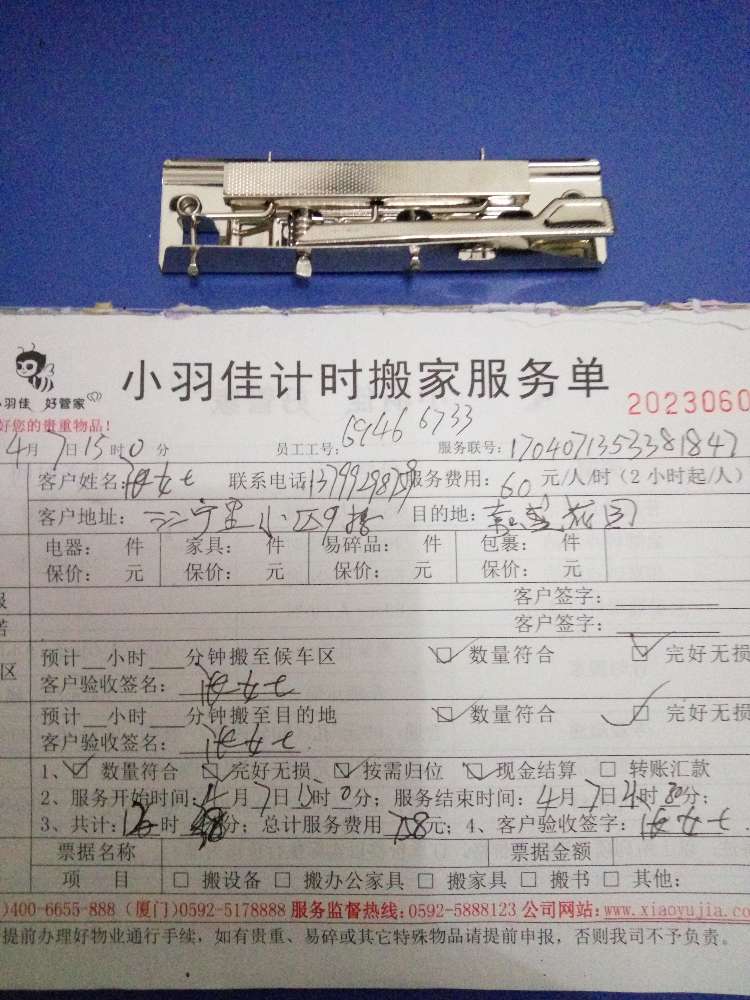 小羽佳计时搬家服务单
小羽佳 好管家
好您的贵重物品！
2023060
4月7日15时0分 员工工号：69466733 服务联号：1704071353381847
客户姓名： 女士 联系电话：13799298289 服务费用：60元/人/时（2小时起/人）
客户地址： 小区9 目的地： 花园
电器： 件 家具： 件 易碎品： 件 包裹： 件
保价： 元 保价： 元 保价： 元 保价： 元
客户签字：
客户签字：
区 预计__小时___分钟搬至候车区 ☑ 数量符合 ☑ 完好无损
客户验收签名： 女士
预计__小时___分钟搬至目的地 ☑ 数量符合 ☑ 完好无损
客户验收签名： 女士
1、☑ 数量符合 ☑ 完好无损 ☑ 按需归位 ☑ 现金结算 □ 转账汇款
2、服务开始时间：4月7日15时0分；服务结束时间：4月7日 时30分；
3、共计： 时 分；总计服务费用 元；4、客户验收签字： 女士
票据名称 票据金额
项 目 □ 搬设备 □ 搬办公家具 □ 搬家具 □ 搬书 □ 其他：
)400-6655-888 (厦门)0592-5178888 服务监督热线：0592-5888123 公司网站：www.xiaoyujia.co
提前办理好物业通行手续，如有贵重、易碎或其它特殊物品请提前申报，否则我司不予负责。